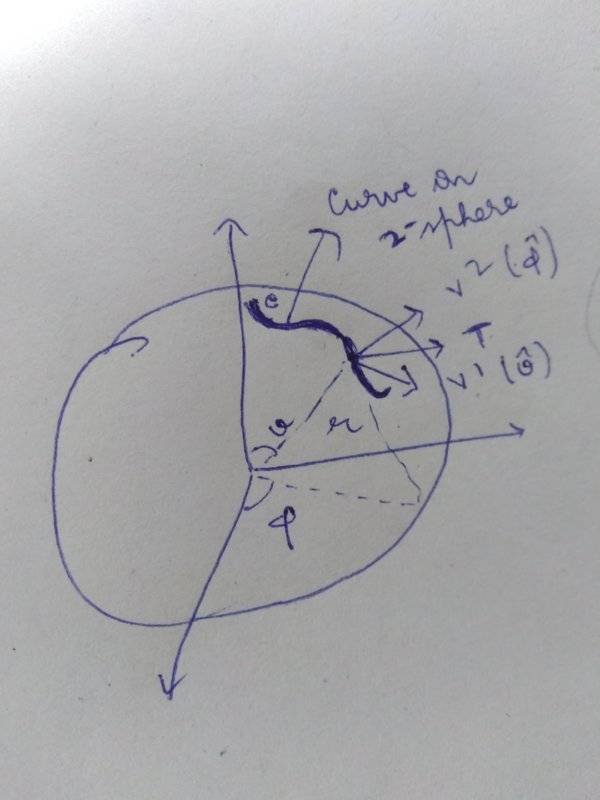 Curve on
2-sphere
c
V² (φ̂)
T
V¹ (θ̂)
θ
r
φ